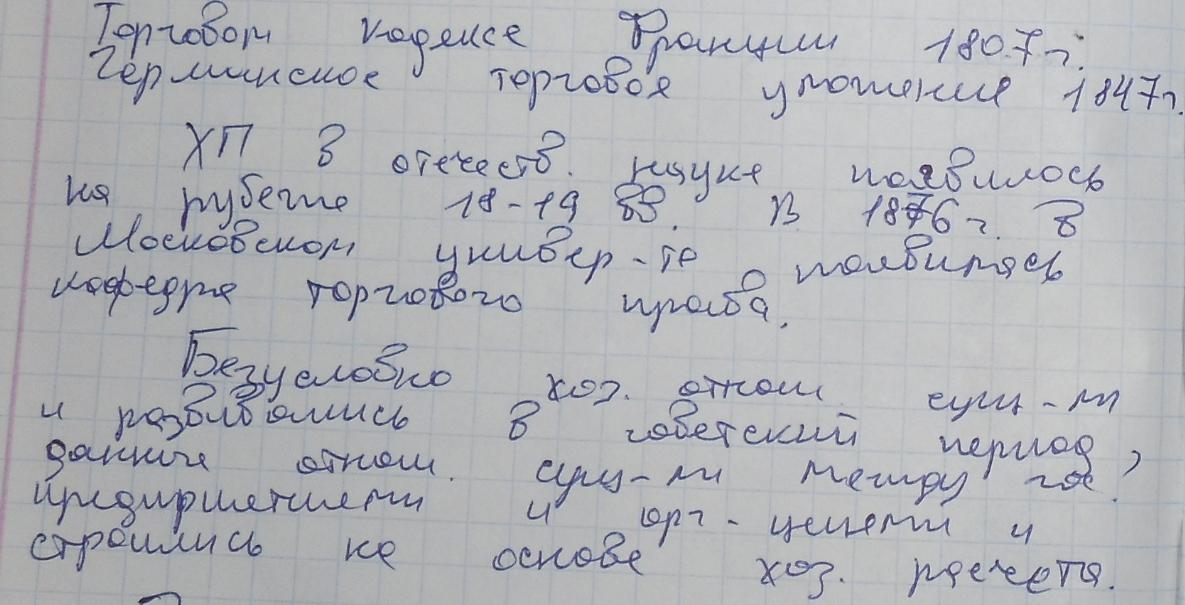 Торговом кодексе Франции 1807 г.
Германское торговое уложение 1847 г.
ХП в отечеств. науке появилось
на рубеже 18-19 вв. В 1876 г. в
Московском универ-те появилась
кафедра торгового права.
Безусловно хоз. отнош. сущ-ли
и развивались в советский период,
данные отнош. сущ-ли между гос.
предприятиями и орг-циями и
строились на основе хоз. расчета.